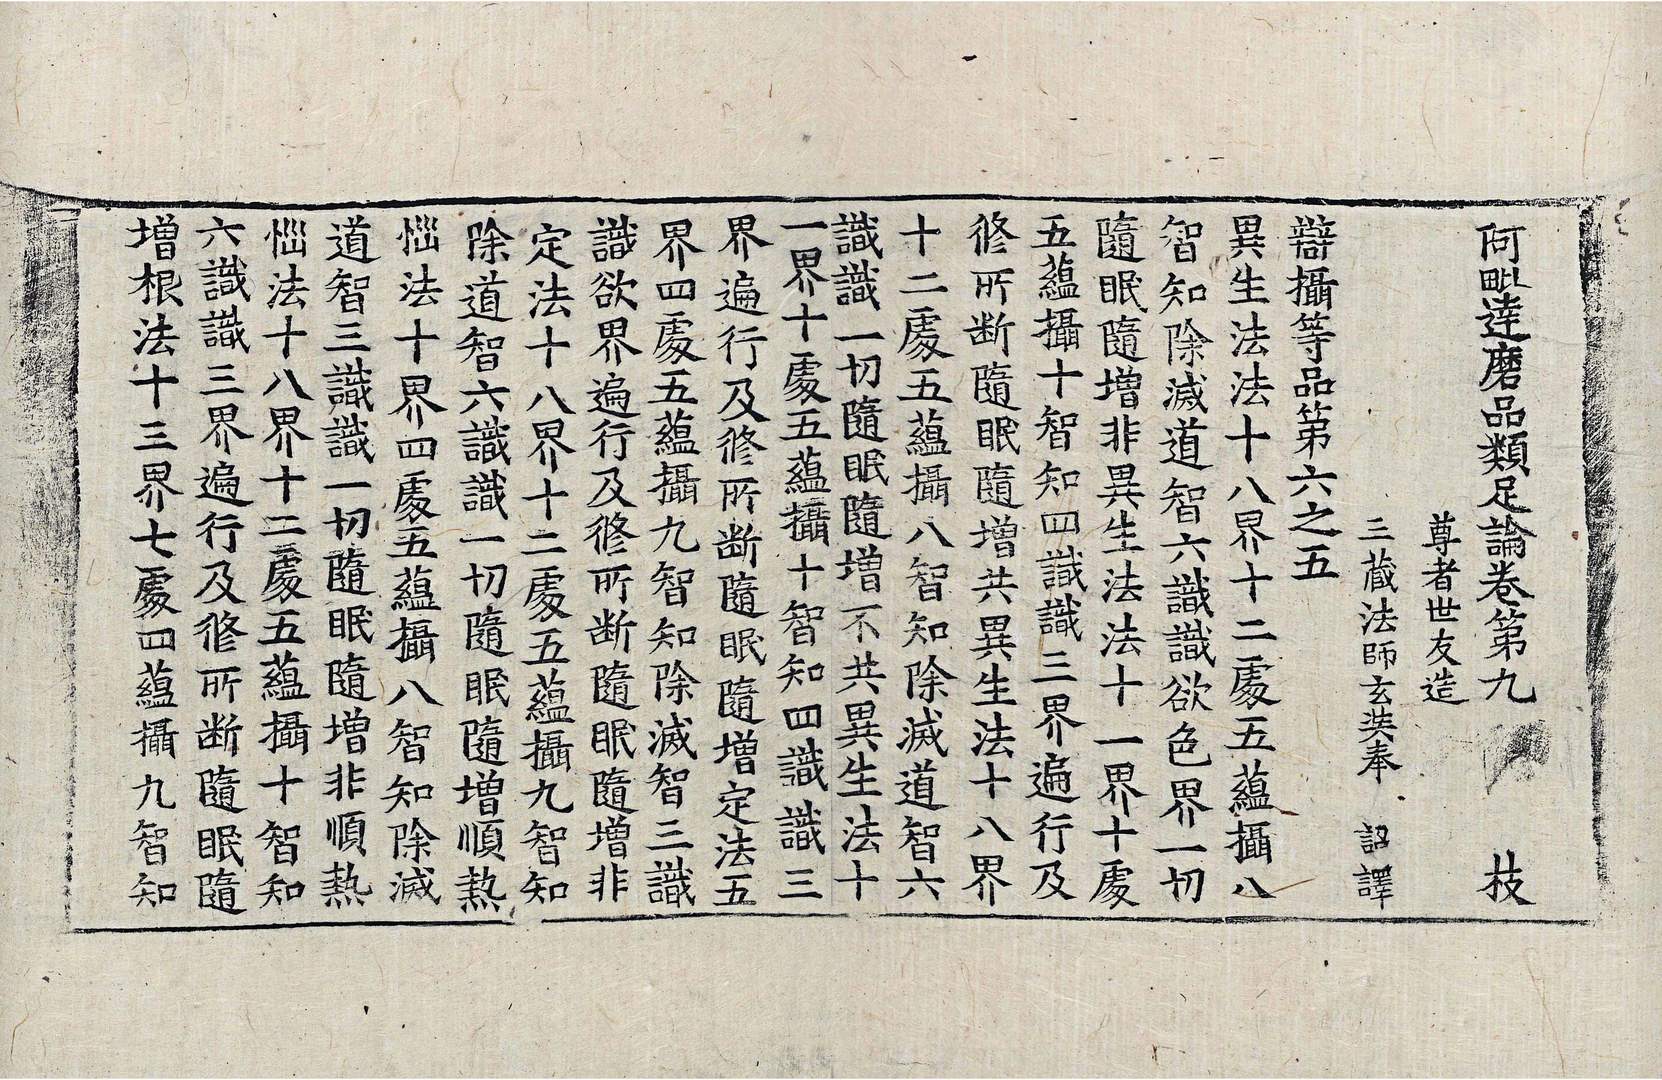 阿毗達磨品類足論卷第九 枝
尊者世友造
三藏法師玄奘奉 詔譯
辯攝等品第六之五
異生法法十八界十二處五蘊攝八
智知除滅道智六識識欲色界一切
隨眠隨增非異生法法十一界十處
五蘊攝十智知四識識三界遍行及
修所斷隨眠隨增共異生法十八界
十二處五蘊攝八智知除滅道智六
識識一切隨眠隨增不共異生法十
一界十處五蘊攝十智知四識識三
界遍行及修所斷隨眠隨增定法五
界四處五蘊攝九智知除滅智三識
識欲界遍行及修所斷隨眠隨增非
定法十八界十二處五蘊攝九智知
除道智六識識一切隨眠隨增順熱
惱法十界四處五蘊攝八智知除滅
道智三識識一切隨眠隨增非順熱
惱法十八界十二處五蘊攝十智知
六識識三界遍行及修所斷隨眠隨
增根法十三界七處四蘊攝九智知